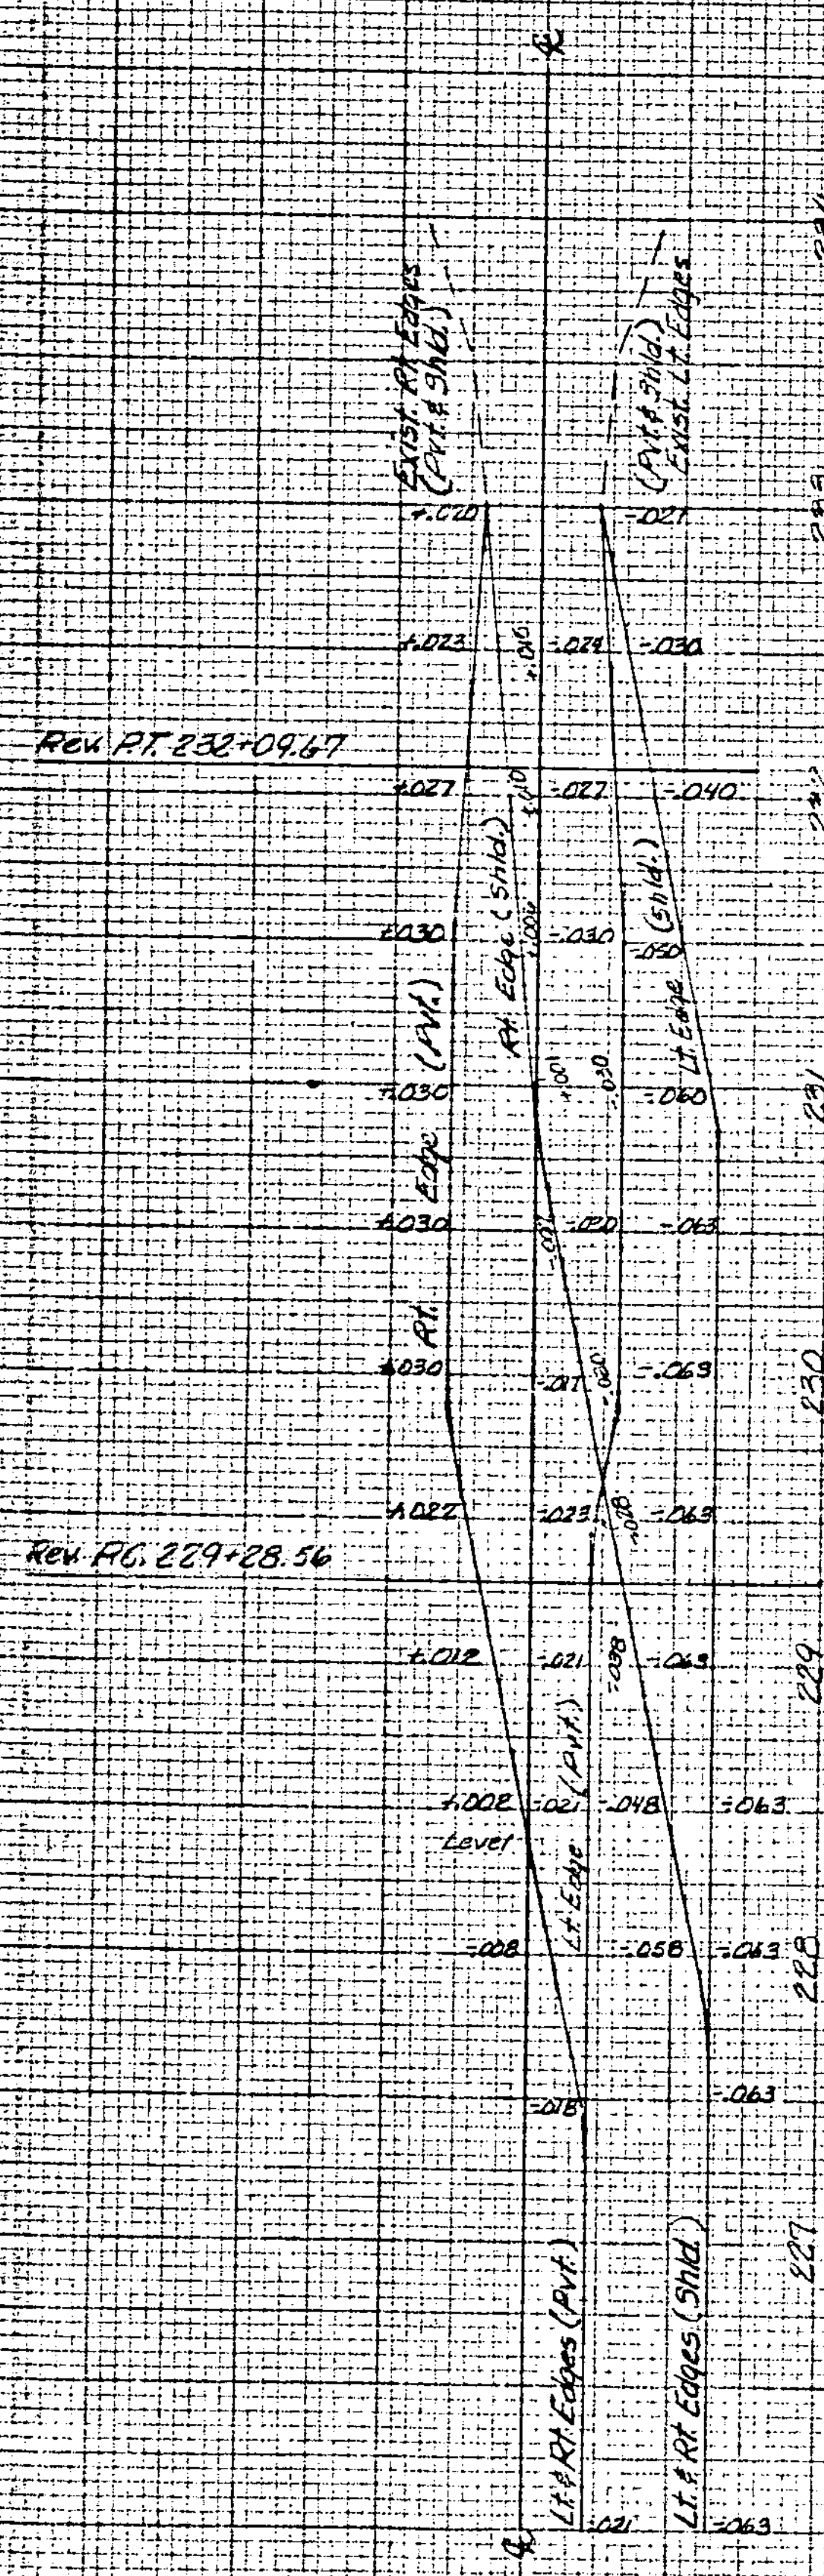 ℄
Exist. Rt. Edges
(Pvt. & Shld.)
(Pvt. & Shld.)
Exist. Lt. Edges
+.020
-.021
233
+.023
+.016
-.024
-.030
Rev. P.T. 232+09.67
+.027
+.010
-.027
-.040
232
Rt. Edge (Shld.)
Lt. Edge (Shld.)
+.030
+.004
-.030
-.050
Rt. Edge (Pvt.)
+.030
+.001
-.030
-.060
231
+.030
-.007
-.063
+.030
-.017
-.063
230
+.022
-.023
-.028
-.063
Rev. P.C. 229+28.56
+.012
-.021
-.038
-.063
229
Lt. Edge (Pvt.)
+.002
-.021
-.048
-.063
Level
-.008
-.058
-.063
228
-.018
-.063
227
Lt. & Rt. Edges (Pvt.)
Lt. & Rt. Edges (Shld.)
-.021
-.063
℄